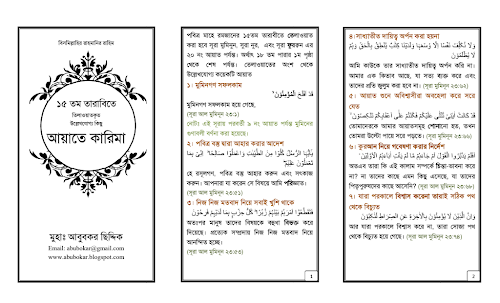 বিসমিল্লাহির রাহমানির রাহিম
১৫ তম তারাবিতে
তিলাওয়াতকৃত
উল্লেখযোগ্য কিছু
আয়াতে কারিমা
মুহাঃ আবুবকর ছিদ্দিক
Email: abubokar@gmail.com
www.abubokar.blogspot.com
পবিত্র মাহে রমজানের ১৫তম তারাবীতে তেলাওয়াত
করা হবে সূরা মুমিনুন, সূরা নূর, এবং সূরা ফুরকান এর
২০ নং আয়াত পর্যন্ত। অর্থাৎ ১৮ তম পারার ১ম পৃষ্ঠা
থেকে শেষ পর্যন্ত। তেলাওয়াতের অংশ থেকে
উল্লেখযোগ্য কয়েকটি আয়াত
১। মুমিনগণ সফলকাম
قَدْ أَفْلَحَ الْمُؤْمِنُونَ
মুমিনগণ সফলকাম হয়ে গেছে,
(সুরা আল মুমিনুন ২৩:১)
নোট: এই সূরার পরবর্তী ৯ নং আয়াত পর্যন্ত মুমিনের
গুণাবলী বর্ণনা করা হয়েছে।
২। পবিত্র বস্তু দ্বারা আহার করার আদেশ
يَا أَيُّهَا الرُّسُلُ كُلُوا مِنَ الطَّيِّبَاتِ وَاعْمَلُوا صَالِحًا ۖ إِنِّي بِمَا
تَعْمَلُونَ عَلِيمٌ
হে রসূলগণ, পবিত্র বস্তু আহার করুন এবং সৎকাজ
করুন। আপনারা যা করেন সে বিষয়ে আমি পরিজ্ঞাত।
(সুরা আল মুমিনুন ২৩:৫১)
৩। নিজ নিজ মতবাদ নিয়ে সবাই খুশি থাকে
فَتَقَطَّعُوا أَمْرَهُم بَيْنَهُمْ زُبُرًا ۖ كُلُّ حِزْبٍ بِمَا لَدَيْهِمْ فَرِحُونَ
অতঃপর মানুষ তাদের বিষয়কে বহুধা বিভক্ত করে
দিয়েছে। প্রত্যেক সম্প্রদায় নিজ নিজ মতবাদ নিয়ে
আনন্দিত হচ্ছে।
(সুরা আল মুমিনুন ২৩:৫৩)
1
৪।সাধ্যাতীত দায়িত্ব অর্পন করা হয়না
وَلَا نُكَلِّفُ نَفْسًا إِلَّا وُسْعَهَا ۖ وَلَدَيْنَا كِتَابٌ يَنطِقُ بِالْحَقِّ ۚ وَهُمْ
لَا يُظْلَمُونَ
আমি কাউকে তার সাধ্যাতীত দায়িত্ব অর্পন করি না।
আমার এক কিতাব আছে, যা সত্য ব্যক্ত করে এবং
তাদের প্রতি জুলুম করা হবে না। (সুরা আল মুমিনুন ২৩:৬২)
৫। আয়াত শুনে অবিশ্বাসীরা অবহেলা করে সরে
যেত
قَدْ كَانَتْ آيَاتِي تُتْلَىٰ عَلَيْكُمْ فَكُنتُمْ عَلَىٰ أَعْقَابِكُمْ تَنكِصُونَ
তোমাদেরকে আমার আয়াতসমূহ শোনানো হত, তখন
তোমরা উল্টো পায়ে সরে পড়তে। (সুরা আল মুমিনুন ২৩:৬৬)
৬। কুরআন নিয়ে গবেষণা করার নির্দেশ
أَفَلَمْ يَدَّبَّرُوا الْقَوْلَ أَمْ جَاءَهُم مَّا لَمْ يَأْتِ آبَاءَهُمُ الْأَوَّلِينَ
অতএব তারা কি এই কালাম সম্পর্কে চিন্তা-ভাবনা করে
না? না তাদের কাছে এমন কিছু এসেছে, যা তাদের
পিতৃপুরুষদের কাছে আসেনি? (সুরা আল মুমিনুন ২৩:৬৮)
৭। যারা পরকালে বিশ্বাস করেনা তারাই সঠিক পথ
থেকে বিচ্যুত
وَإِنَّ الَّذِينَ لَا يُؤْمِنُونَ بِالْآخِرَةِ عَنِ الصِّرَاطِ لَنَاكِبُونَ
আর যারা পরকালে বিশ্বাস করে না, তারা সোজা পথ
থেকে বিচ্যুত হয়ে গেছে। (সুরা আল মুমিনুন ২৩:৭৪)
2